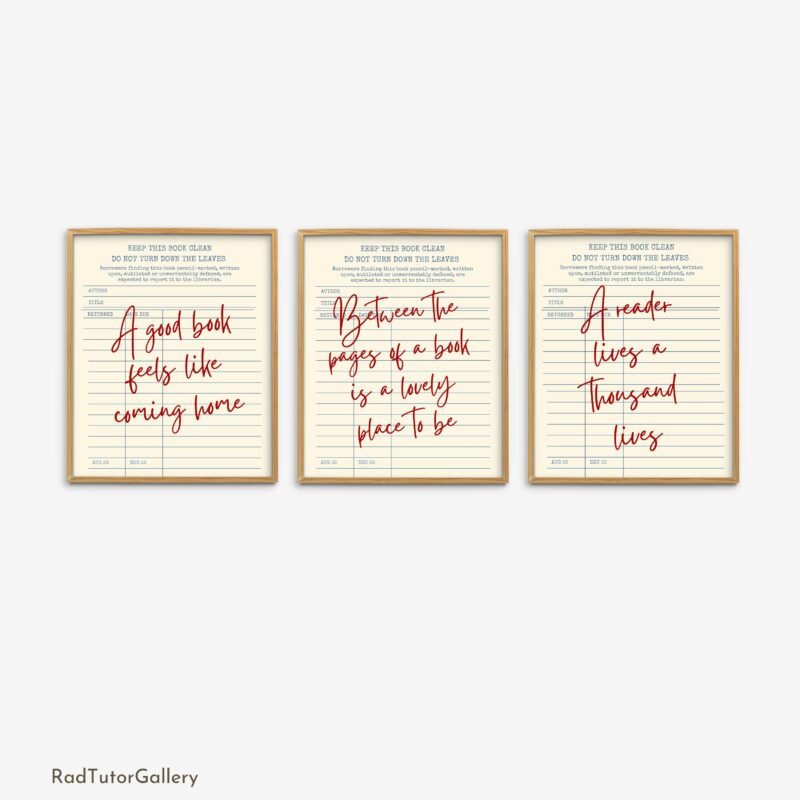 KEEP THIS BOOK CLEAN
DO NOT TURN DOWN THE LEAVES
Borrowers finding this book pencil-marked, written
upon, mutilated or unwarrantably defaced, are
expected to report it to the librarian.
AUTHOR
TITLE
RETURNED DATE DUE
A good book
feels like
coming home
AUG 25 DEC 25
KEEP THIS BOOK CLEAN
DO NOT TURN DOWN THE LEAVES
Borrowers finding this book pencil-marked, written
upon, mutilated or unwarrantably defaced, are
expected to report it to the librarian.
AUTHOR
TITLE
RETURNED DATE DUE
Between the
pages of a book
is a lovely
place to be
AUG 25 DEC 25
KEEP THIS BOOK CLEAN
DO NOT TURN DOWN THE LEAVES
Borrowers finding this book pencil-marked, written
upon, mutilated or unwarrantably defaced, are
expected to report it to the librarian.
AUTHOR
TITLE
RETURNED DATE DUE
A reader
lives a
thousand
lives
AUG 25 DEC 25
RadTutorGallery